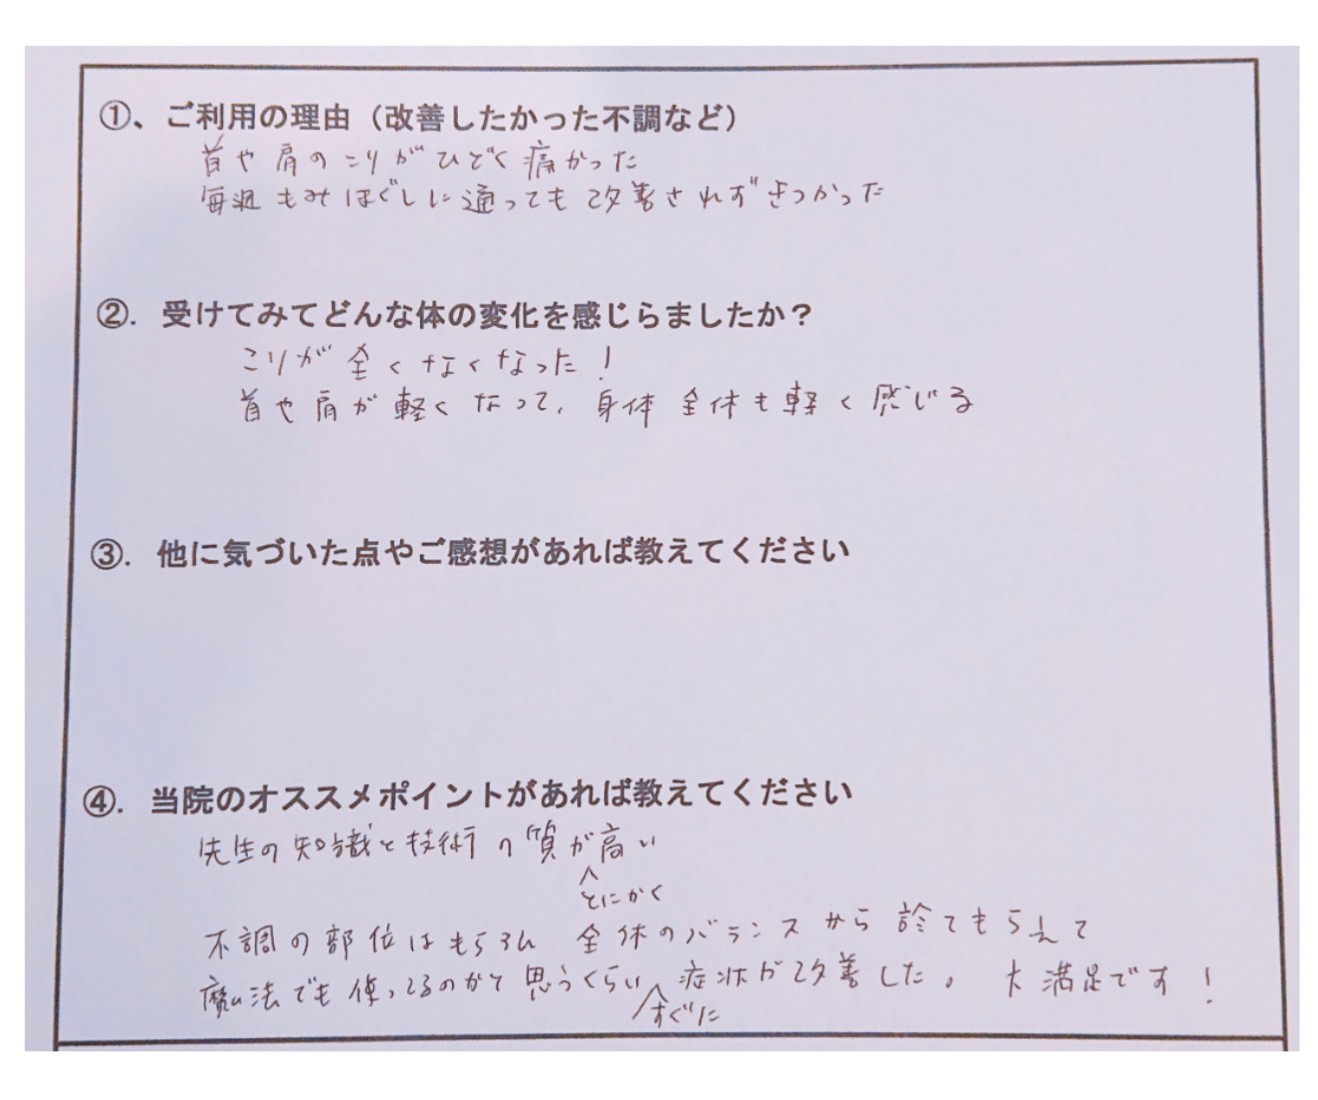 ①、ご利用の理由（改善したかった不調など）
首や肩のこりがひどく痛かった
毎週もみほぐしに通っても改善されずきつかった
②．受けてみてどんな体の変化を感じらましたか？
こりが全くなくなった！
首や肩が軽くなって、身体全体も軽く感じる
③．他に気づいた点やご感想があれば教えてください
④．当院のオススメポイントがあれば教えてください
先生の知識と技術の質が高い
とにかく
不調の部位はもちろん全体のバランスから診てもらえて
魔法でも使ってるのかと思うくらい症状が改善した。大満足です！
すぐに